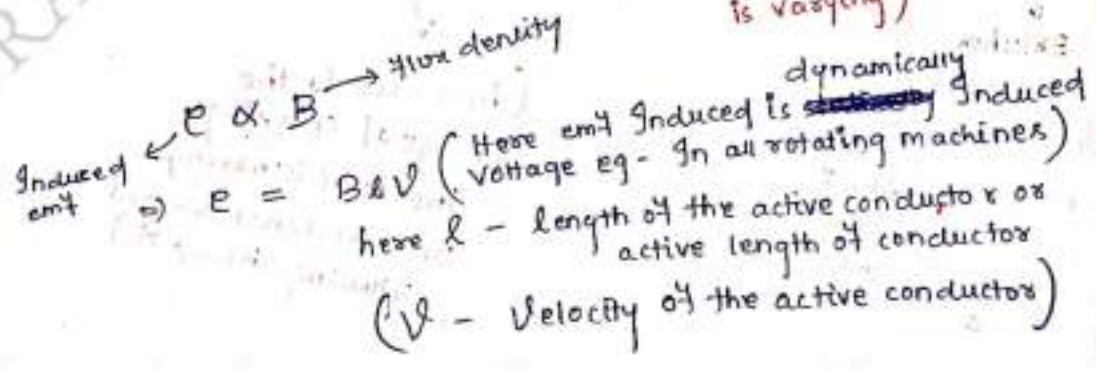 is varying)
e ∝ B → Flux density
Induced emf
dynamically
⇒ e = Blv (Here emf Induced is Induced
Voltage eg - In all rotating machines)
here l - length of the active conductor or
active length of conductor
(v - Velocity of the active conductor)